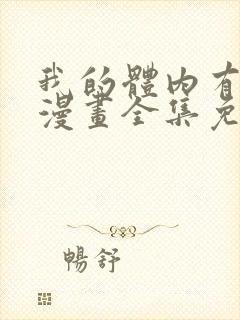 我的體內有
漫畫全集免
暢舒